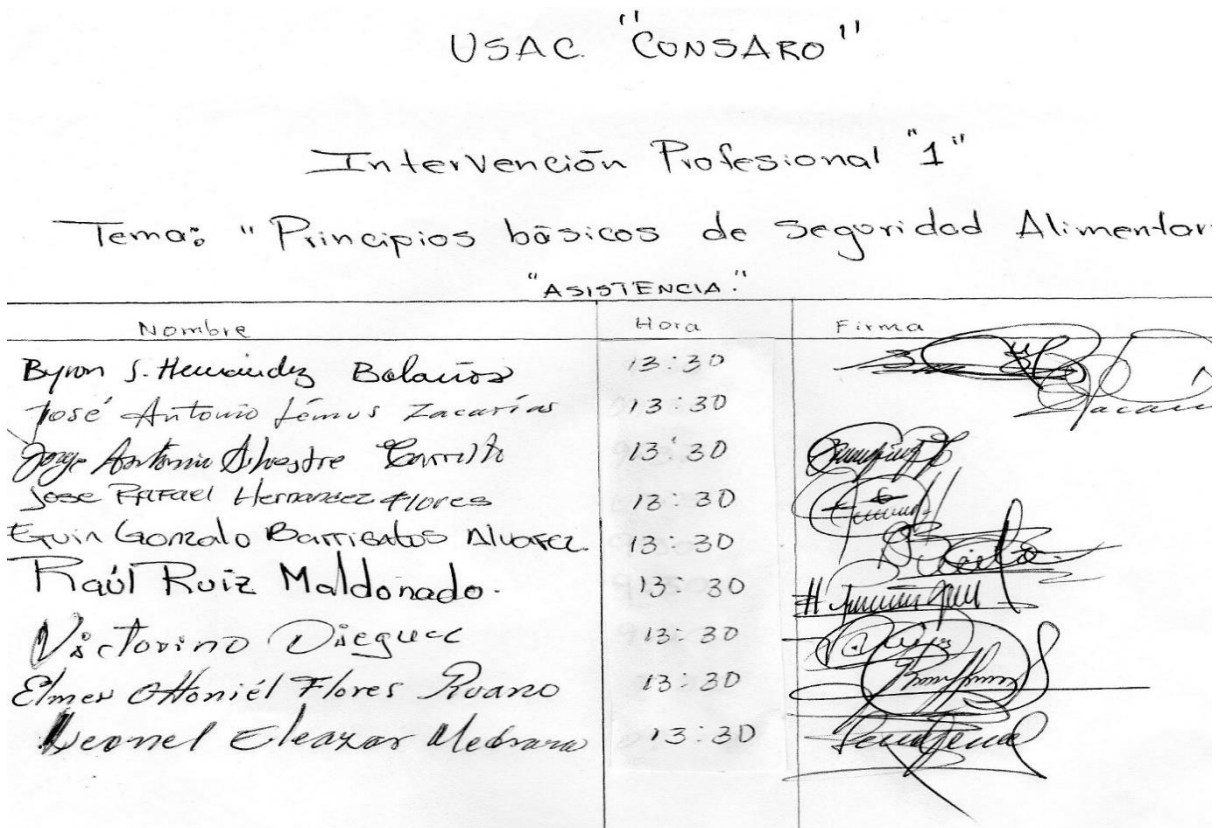 USAC. "CONSARO"
Intervención Profesional "1"
Tema: "Principios básicos de Seguridad Alimentar
"ASISTENCIA."
Nombre Hora Firma
Byron S. Hernández Bolaños 13:30
José Antonio Lémus Zacarías 13:30
Jorge Antonio Silvestre Carrillo 13:30
Jose Rafael Hernandez Flores 13:30
Eguin Gonzalo Barrientos Alvarez. 13:30
Raúl Ruiz Maldonado. 13:30
Victorino Dieguez 13:30
Elmer Othoniél Flores Ruano 13:30
Leonel Eleazar Medrano 13:30